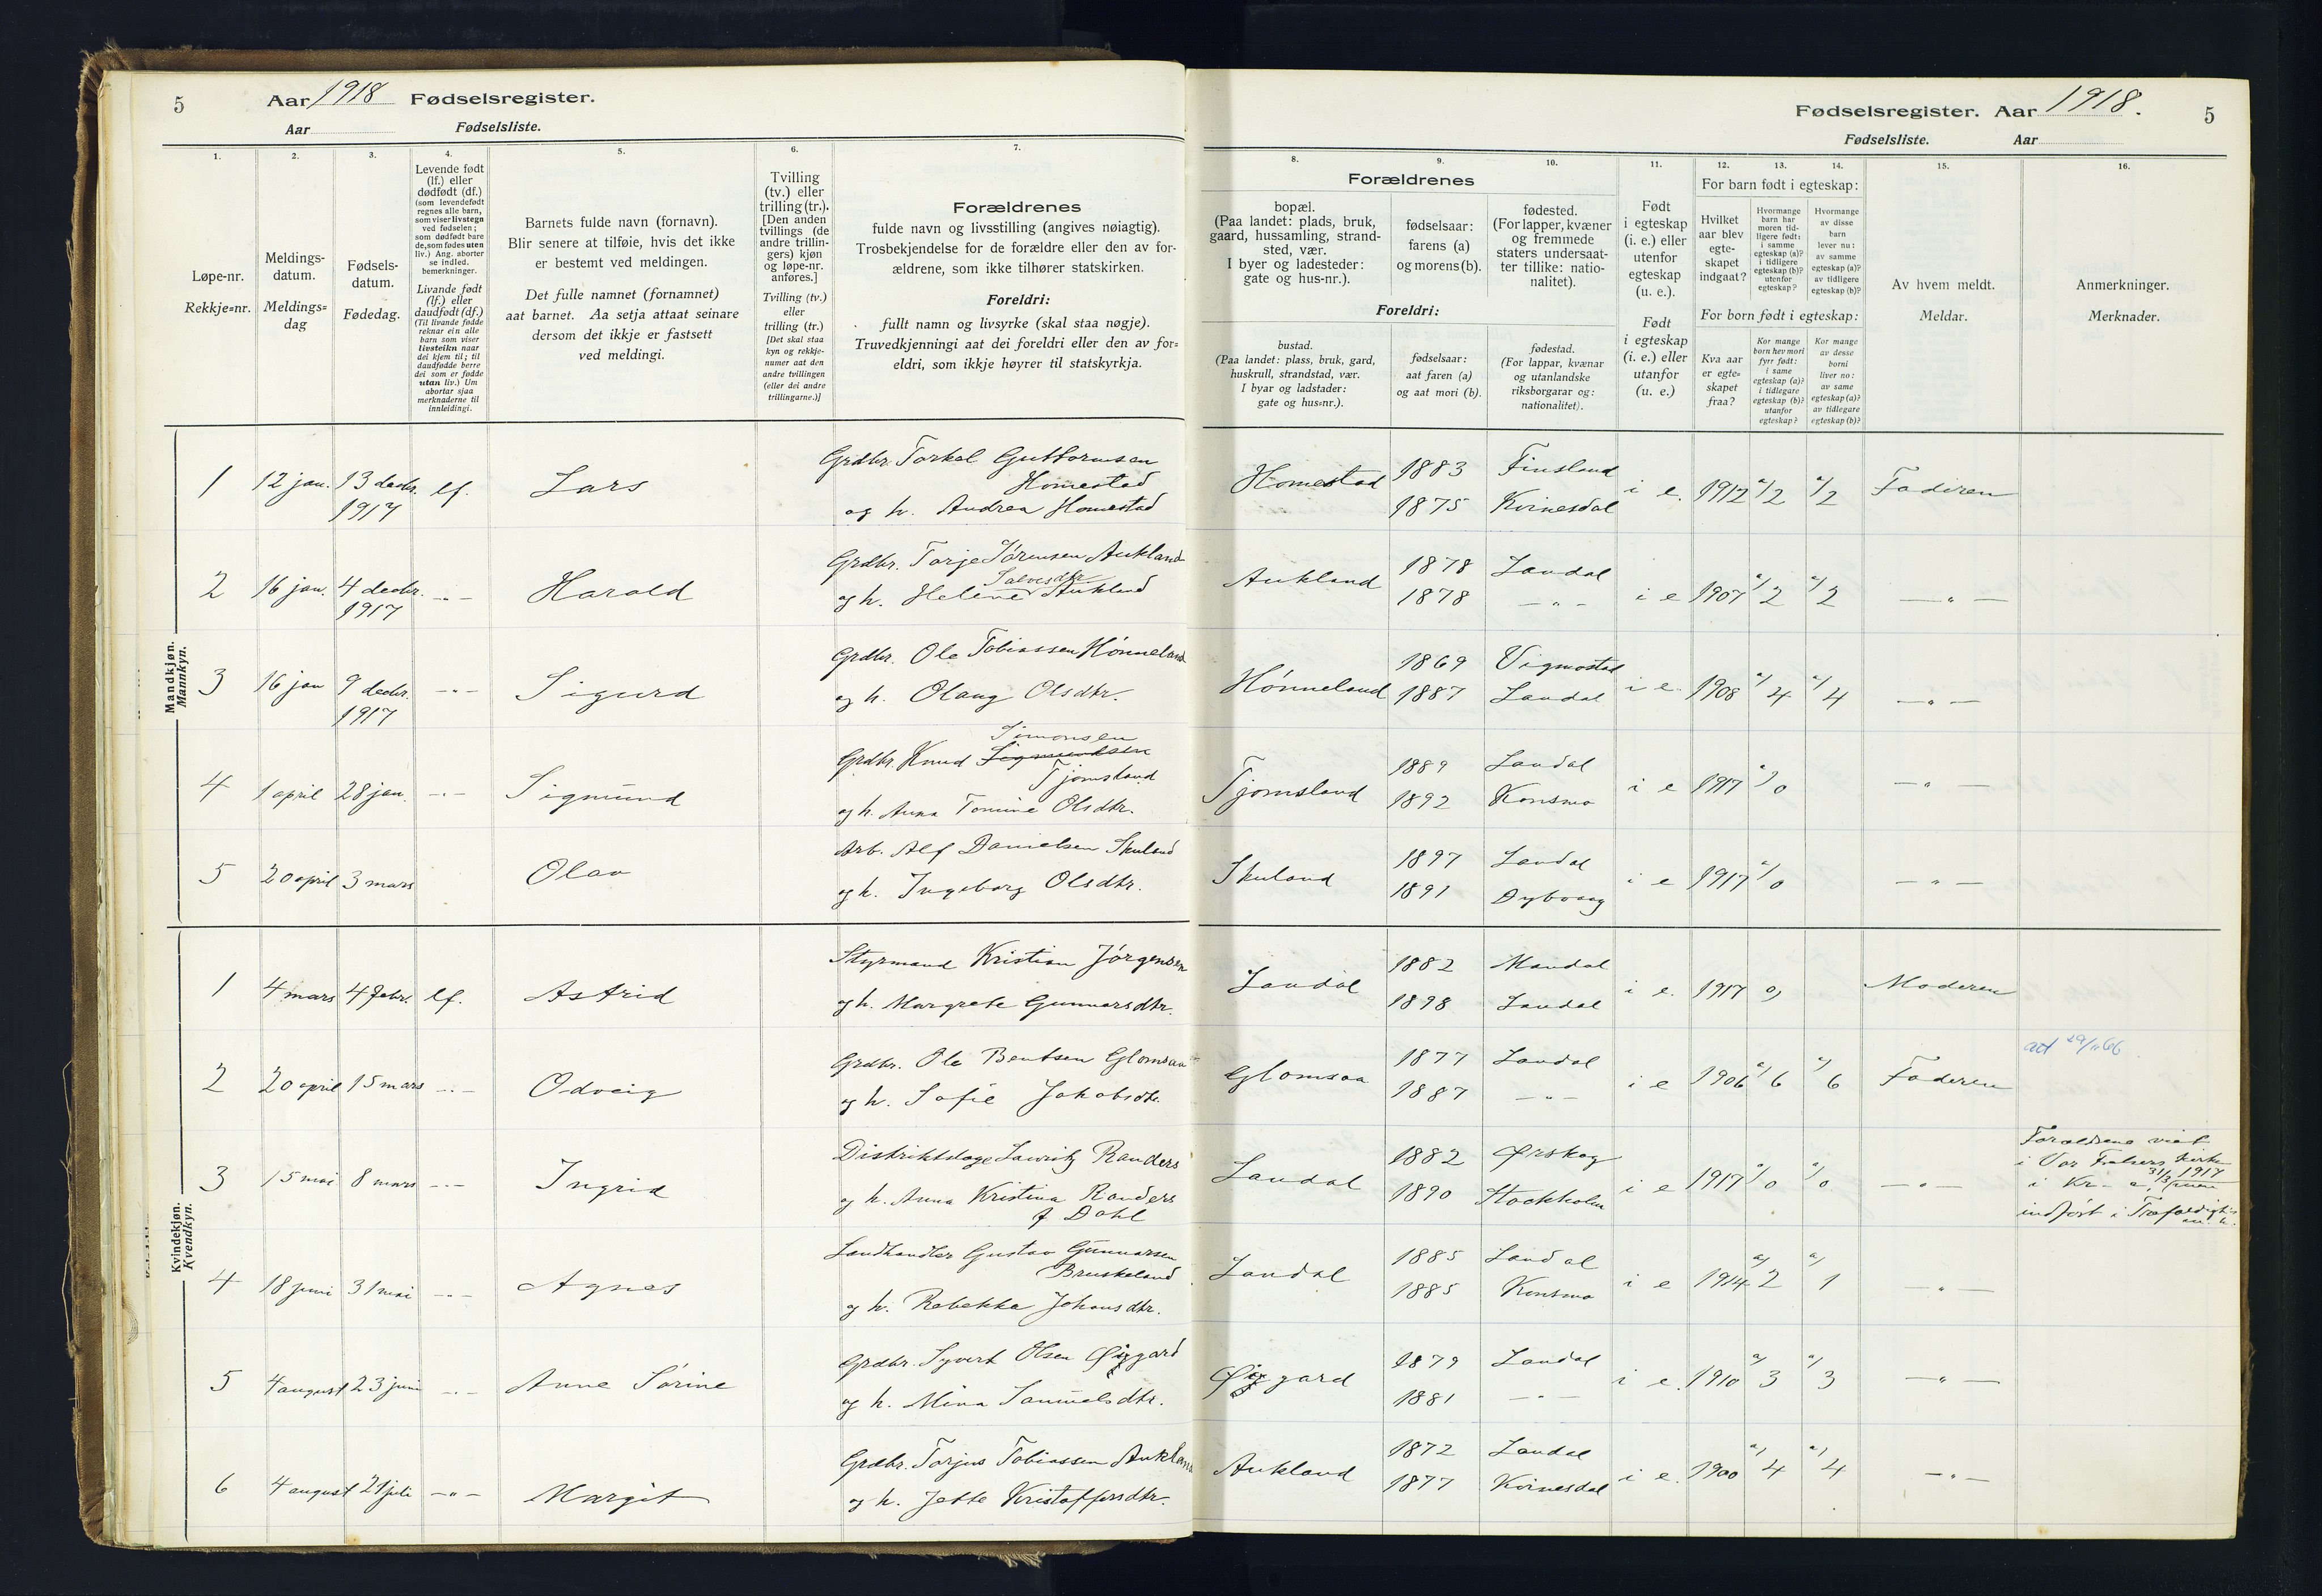 5 Aar 1918 Fødselsregister.
Aar Fødselsliste.
1. 2. 3. 4. 5. 6. 7.
Løpe-nr.
Rekkje=nr.
Meldings-
datum.
Meldings=
dag
Fødsels-
datum.
Fødedag.
Levende født
(lf.) eller
dødfødt (df.)
(som levendefødt
regnes alle barn,
som viser livstegn
ved fødselen;
som dødfødt bare
de, som fødes uten
liv.) Ang. aborter
se indled.
bemerkninger.
Livande født
(lf.) eller
daudfødt (df.)
(Til livande fødde
reknar ein alle
barn som viser
livsteikn naar
dei kjem til; til
daudfødde berre
dei som er fødde
utan liv.) Um
abortar sjaa
merknaderne til
innleidingi.
Barnets fulde navn (fornavn).
Blir senere at tilføie, hvis det ikke
er bestemt ved meldingen.
Det fulle namnet (fornamnet)
aat barnet. Aa setja attaat seinare
dersom det ikkje er fastsett
ved meldingi.
Tvilling
(tv.) eller
trilling (tr.).
[Den anden
tvillings (de
andre trillin-
gers) kjøn
og løpe-nr.
anføres.]
Tvilling (tv.)
eller
trilling (tr.)
[Det skal staa
kyn og rekkje-
numer aat den
andre tvillingen
(eller dei andre
trillingarne.)]
Forældrenes
fulde navn og livsstilling (angives nøiagtig).
Trosbekjendelse for de forældre eller den av for-
ældrene, som ikke tilhører statskirken.
Foreldri:
fullt namn og livsyrke (skal staa nøgje).
Truvedkjenningi aat dei foreldri eller den av for=
eldri, som ikkje høyrer til statskyrkja.
Mandkjøn.
Mannkyn.
1 12 jan. 13 decbr. 1917 lf. Lars
Grdbr. Torkel Guttormsen
Homestad
og h. Andrea Homestad
2 16 jan. 4 decbr. 1917 -"- Harald
Grdbr. Torje Sørensen Aukland
Salvesdtr
og h. Helene Aukland
3 16 jan 9 decbr. 1917 -"- Sigurd
Grdbr. Ole Tobiassen Hønneland
og h. Olaug Olsdtr.
4 1 april 28 jan. -"- Sigmund
Simonsen
Grdbr. Knud Sigmundsen
Tjomsland
og h. Anna Tomine Olsdtr.
5 20 april 3 mars Olav
Arb. Alf Danielsen Skuland
og h. Ingeborg Olsdtr.
Kvindekjøn.
Kvendkyn.
1 4 mars 4 febr. lf. Astrid
Styrmand Kristian Jørgensen
og h. Margrete Gunnarsdtr.
2 20 april 15 mars -"- Odveig
Grdbr. Ole Bentsen Glomsaa
og h. Sofie Jakobsdtr.
3 15 mai 8 mars -"- Ingrid
Distriktslæge Lauritz Randers
og h. Anna Kristina Randers
f. Dahl
4 18 juni 31 mai -"- Agnes
Landhandler Gustav Gunnarsen
Bruskeland
og h. Rebekka Johansdtr.
5 4 august 23 juni -"- Anne Sørine
Grdbr. Syvert Olsen Øigard
og h. Mina Samuelsdtr.
6 4 august 21 juli -"- Margit
Grdbr. Torjus Tobiassen Aukland
og h. Jette Kristoffersdtr.
Fødselsregister. Aar 1918. 5
Fødselsliste. Aar
8. 9. 10. 11. 12. 13. 14. 15. 16.
Forældrenes
bopæl.
(Paa landet: plads, bruk,
gaard, hussamling, strand-
sted, vær.
I byer og ladesteder:
gate og hus-nr.).
fødselsaar:
farens (a)
og morens (b).
fødested.
(For lapper, kvæner
og fremmede
staters undersaat-
ter tillike: natio-
nalitet).
Foreldri:
bustad.
(Paa landet: plass, bruk, gard,
huskrull, strandstad, vær.
I byar og ladstader:
gate og hus=nr.).
fødselsaar:
aat faren (a)
og aat mori (b).
fødestad.
(For lappar, kvænar
og utanlandske
riksborgarar og:
nationalitet).
Født
i egteskap
(i. e.) eller
utenfor
egteskap
(u. e.).
Født
i egteskap
(i. e.) eller
utanfor
(u. e.)
For barn født i egteskap:
Hvilket
aar blev
egte-
skapet
indgaat?
Hvormange
barn har
moren tid-
ligere født:
i samme
egteskap (a)?
i tidligere
egteskap (b)?
utenfor
egteskap?
Hvormange
av disse
barn
lever nu:
av samme
egteskap (a)?
av tidligere
egteskap (b)?
For born født i egteskap:
Kva aar
er egte=
skapet
fraa?
Kor mange
born hev mori
fyrr født:
i same
egteskap (a)?
i tidlegare
egteskap (b)?
utanfor
egteskap?
Kor mange
av desse
borni
liver no:
av same
egteskap (a)?
av tidlegare
egteskap (b)?
Av hvem meldt.
Meldar.
Anmerkninger.
Merknader.
Homestad 1883 Finsland i e. 1912 a/2 a/2 Faderen
1875 Kvinesdal
Aukland 1878 Laudal i e 1907 a/2 a/2 -"-
1878 -"-
Hønneland 1869 Vigmostad i e 1908 a/4 a/4 -"-
1887 Laudal
Tjomsland 1889 Laudal i e 1917 a/0 -"-
1892 Konsmo
Skuland 1897 Laudal i e 1917 a/0 -"-
1891 Dybvaag
Laudal 1882 Mandal i e. 1917 0/ Moderen
1898 Laudal
Glomsaa 1877 Laudal i e 1906 a/6 a/6 Faderen
1887 -"-
att 29/11 66
Laudal 1882 Ørskog i e 1917 a/0 a/0 -"-
1890 Stockholm
Forældrene viet
i Vor Frelsers Kirke
i Kr-a, 31/3 1917
indført i
Laudal 1885 Laudal i e 1914 a/2 a/1 -"-
1885 Konsmo
Øigard 1879 Laudal i e. 1910 a/3 a/3 -"-
1881 -"-
Aukland 1872 Laudal i e. 1900 a/4 a/4 -"-
1877 Kvinesdal